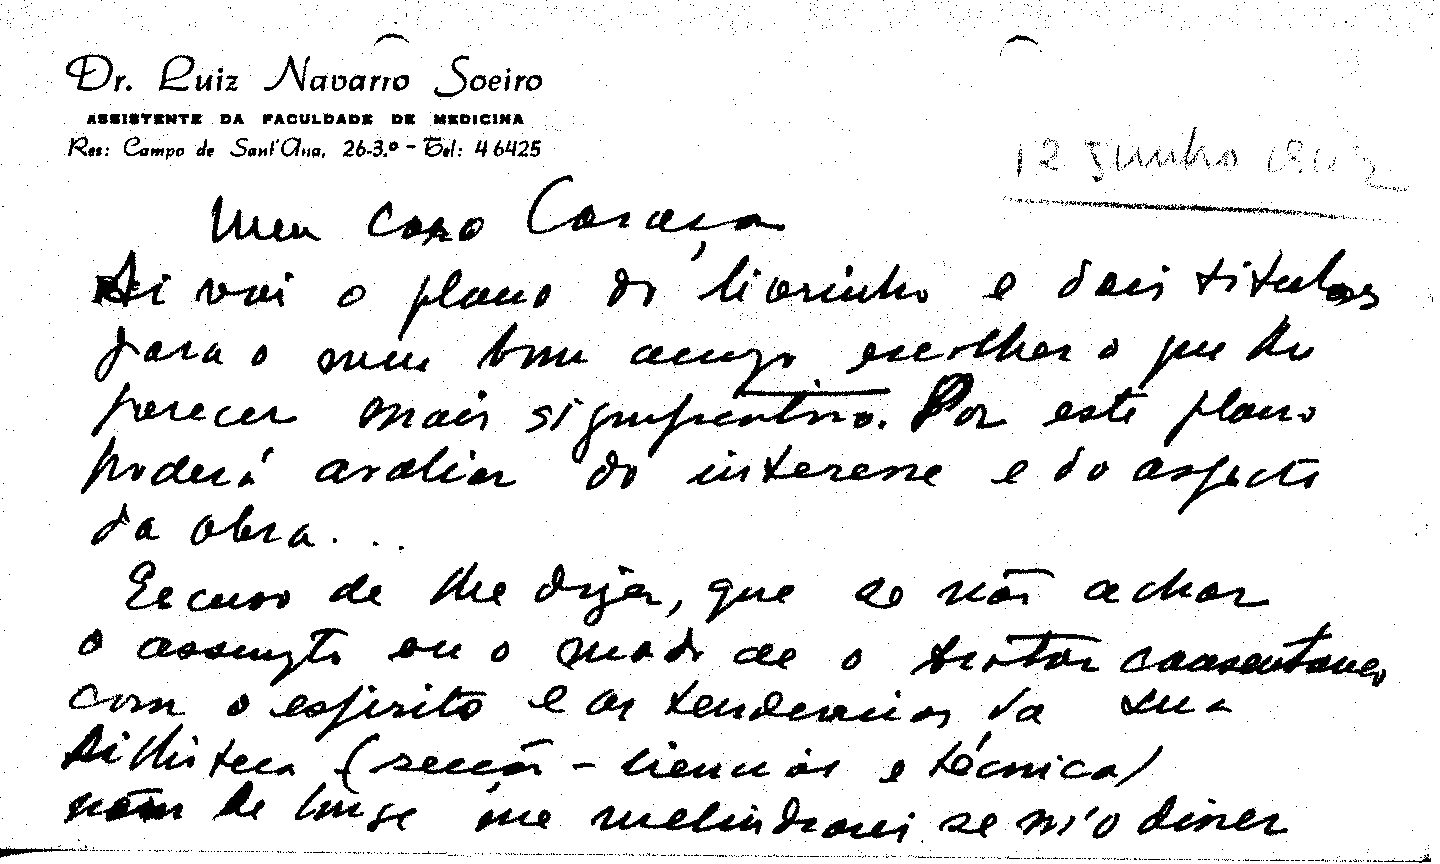 Dr. Luiz Navarro Soeiro
ASSISTENTE DA FACULDADE DE MEDICINA
Res: Campo de Sant'Ana, 26-3.º - Tel: 46425
12 Junho
Meu caro Caraça
Ai vai o plano do livrinho e dois titulos
para o meu bom amigo escolher o que lhe
parecer mais significativo. Por este plano
poderá avaliar do interesse e do aspecto
da obra...
Escuso de lhe dizer, que se não achar
o assumpto ou o modo de o tratar consentaneo
com o espirito e as tendencias da sua
Biblioteca (secção - sciencias e técnica)
nem de longe me melindrarei se m'o disser